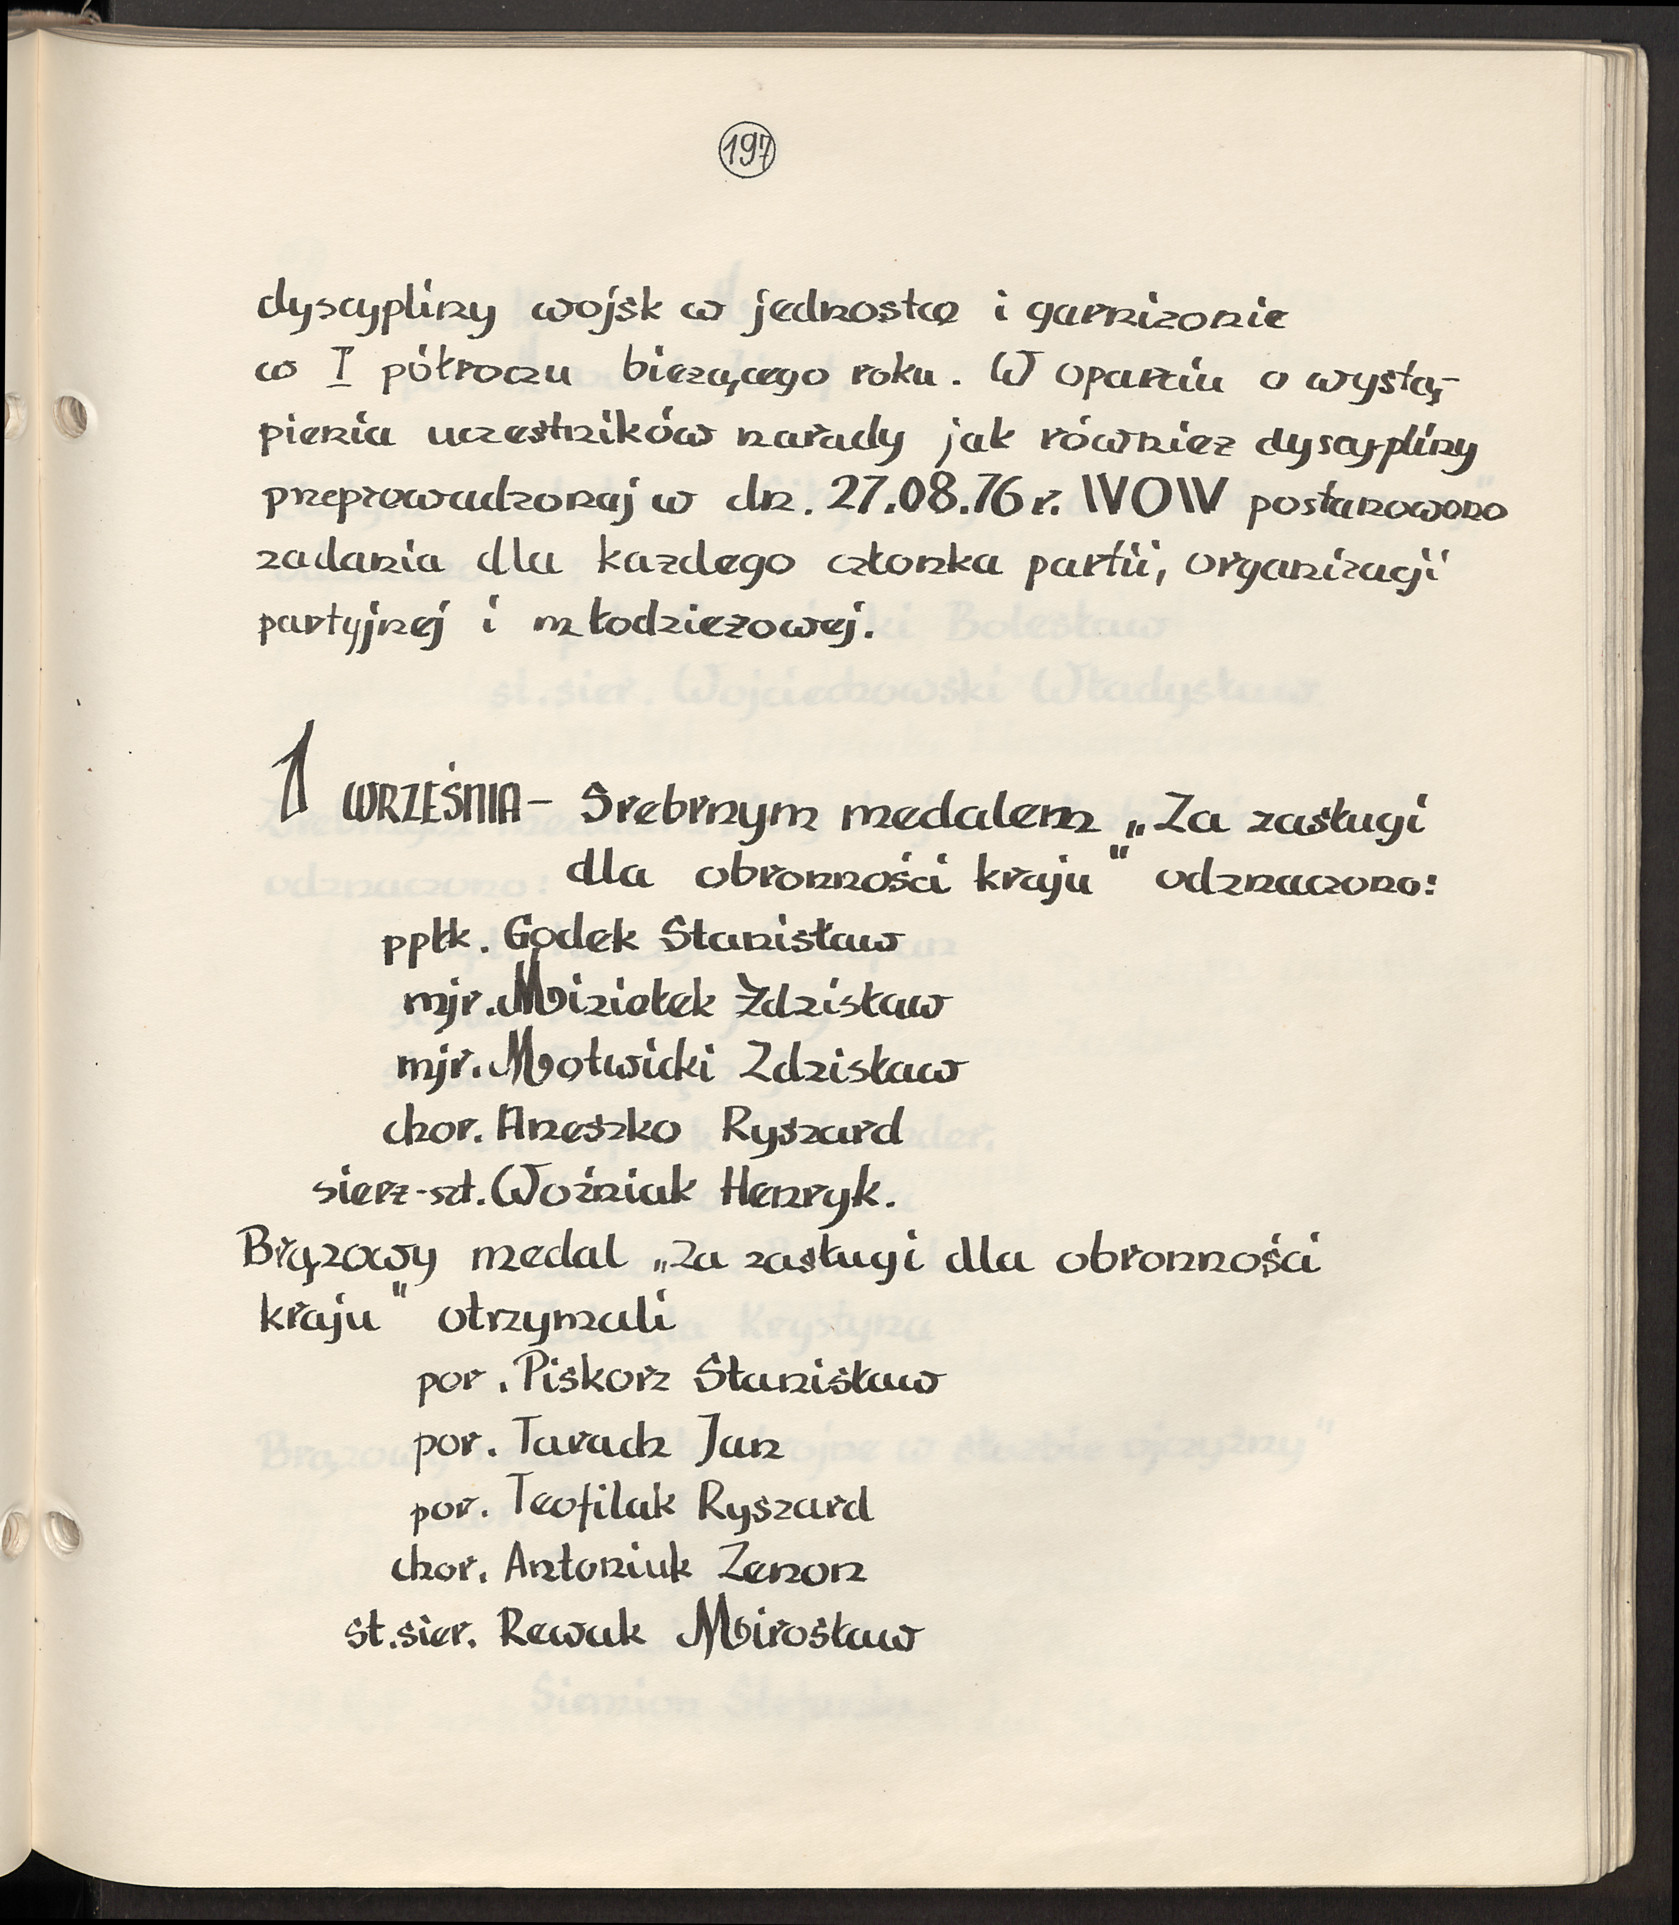 197
dyscypliny wojsk w jednostce i garnizonie
w I półroczu bieżącego roku. W oparciu o wystą-
pienia uczestników narady jak również dyscypliny
przeprowadzonej w dn. 27.08.76 r. WOW postanowiono
zadania dla każdego członka partii, organizacji
partyjnej i młodzieżowej.
1 WRZEŚNIA - Srebrnym medalem „Za zasługi
dla obronności kraju" odznaczono:
ppłk. Godek Stanisław
mjr. Miziołek Zdzisław
mjr. Motwicki Zdzisław
chor. Aneszko Ryszard
sierż-szt. Woźniak Henryk.
Brązowy medal „za zasługi dla obronności
kraju" otrzymali
por. Piskorz Stanisław
por. Tarach Jan
por. Teofilak Ryszard
chor. Antoniuk Zenon
st.sier. Rewak Mirosław